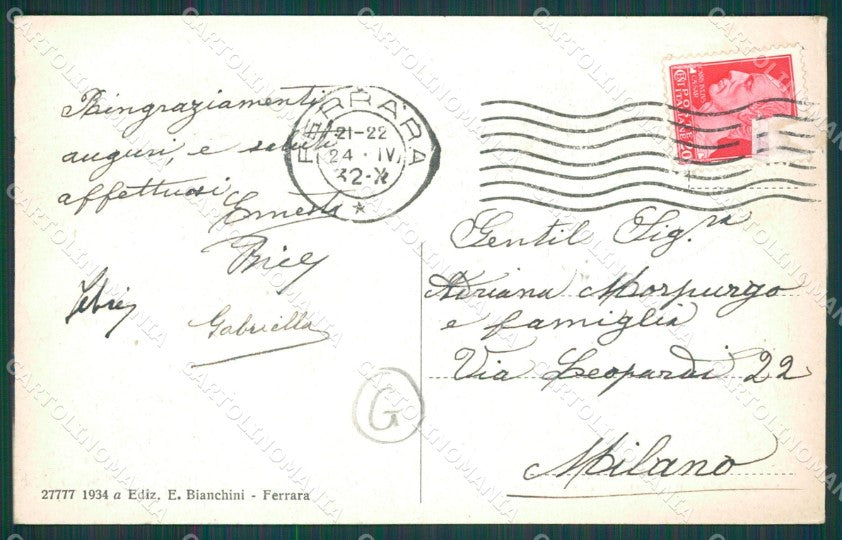 Ringraziamenti
auguri, e saluti
affettuosi
Ernesto
Gabriella
27777 1934 a Ediz. E. Bianchini - Ferrara
FERRARA
21-22
24 · IV
32-X
Gentil Sig.ra
Adriana Morpurgo
e famiglia
Via Leopardi 22
Milano
G
POSTE
ITALIANE
CARTOLINOMANIA